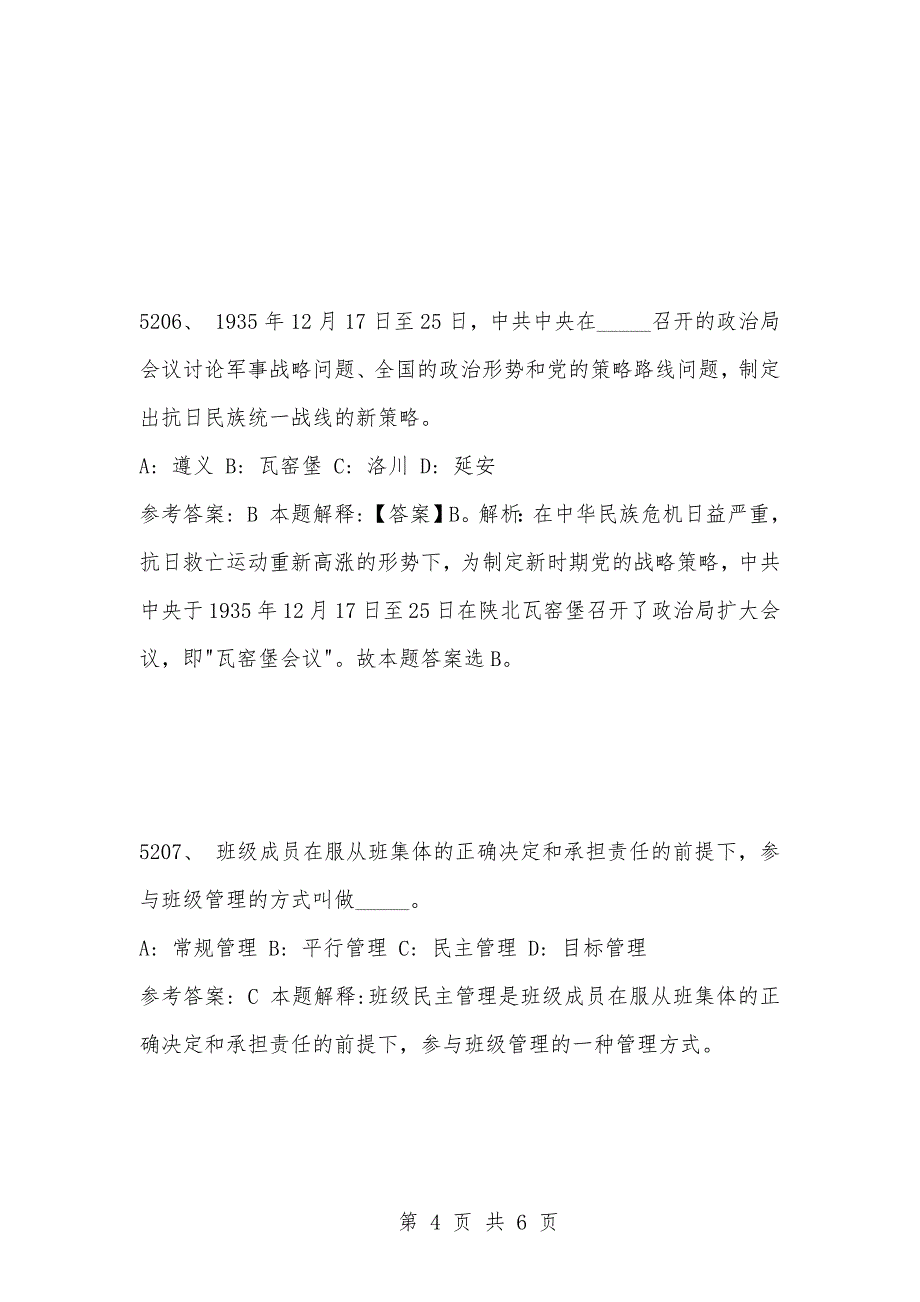 5206、 1935年12月17日至25日，中共中央在_____召开的政治局
会议讨论军事战略问题、全国的政治形势和党的策略路线问题，制定
出抗日民族统一战线的新策略。
A: 遵义 B: 瓦窑堡 C: 洛川 D: 延安
参考答案: B 本题解释:【答案】B。解析：在中华民族危机日益严重，
抗日救亡运动重新高涨的形势下，为制定新时期党的战略策略，中共
中央于1935年12月17日至25日在陕北瓦窑堡召开了政治局扩大会
议，即"瓦窑堡会议"。故本题答案选B。
5207、 班级成员在服从班集体的正确决定和承担责任的前提下，参
与班级管理的方式叫做_____。
A: 常规管理 B: 平行管理 C: 民主管理 D: 目标管理
参考答案: C 本题解释:班级民主管理是班级成员在服从班集体的正
确决定和承担责任的前提下，参与班级管理的一种管理方式。
第 4 页 共 6 页